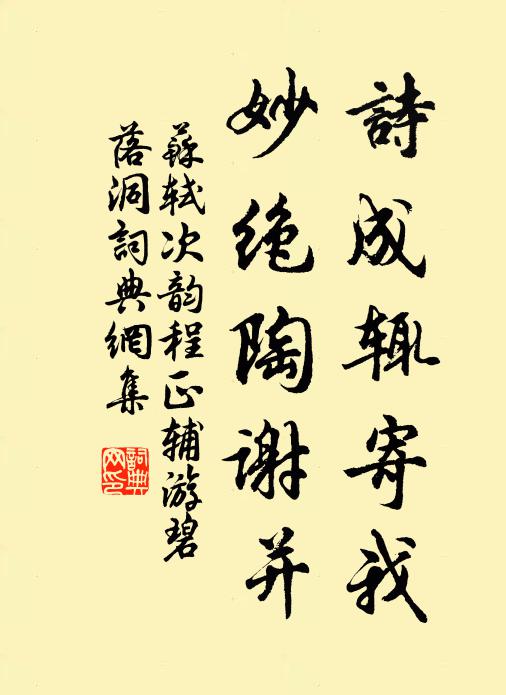 詩成辄寄我
妙絶陶謝并
蘇轼次韵程正辅游碧
落洞詞典網集
詞典
网印